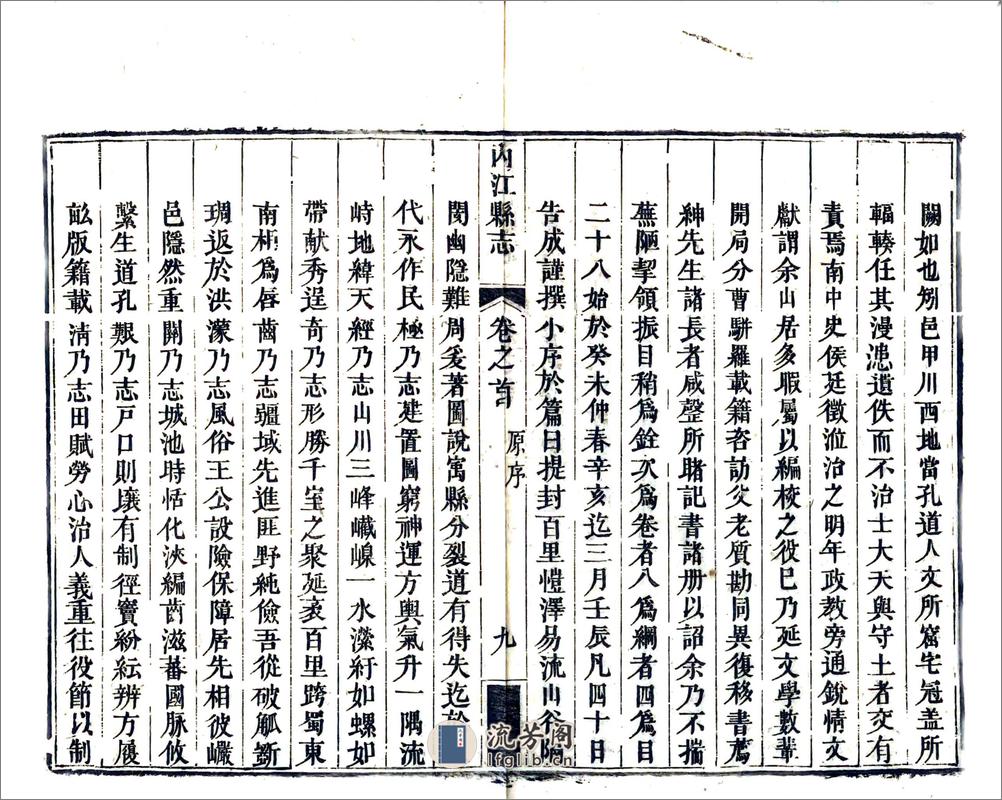 闕如也矧邑甲川西地當孔道人文所窟宅冠盖所
輻輳任其漫漶遺佚而不治士大夫與守土者交有
責焉南中史侯廷徵涖治之明年政教旁通銳情文
獻謂余山居多暇屬以編校之役巳乃延文學數輩
開局分曹駢羅載籍咨訪父老質勘同異復移書薦
紳先生諸長者咸罄所睹記書諸册以詔余乃不揣
蕪陋挈領振目稍爲銓次爲卷者八爲綱者四爲目
二十八始於癸未仲春辛亥迄三月壬辰凡四十日
告成謹撰小序於篇曰提封百里愷澤易流山谷隔
內江縣志 卷之首 原序 九
閡幽隱難周爰著圖說寓縣分裂道有得失迄於
代永作民極乃志建置圖窮神運方輿氣升一隅流
峙地緯天經乃志山川三峰巘嵲一水瀠紆如螺如
帶献秀逞奇乃志形勝千室之聚延袤百里跨蜀東
南栢爲唇齒乃志疆域先進匪野純儉吾從破觚斲
琱返於洪濛乃志風俗王公設險保障居先相彼巖
邑隱然重關乃志城池時恬化浹編齒滋蕃國脉攸
繫生道孔艱乃志戸口則壤有制徑竇紛紜辨方履
畝版籍載淸乃志田賦勞心治人義重往役節以制
流芳阁
lfglib.cn